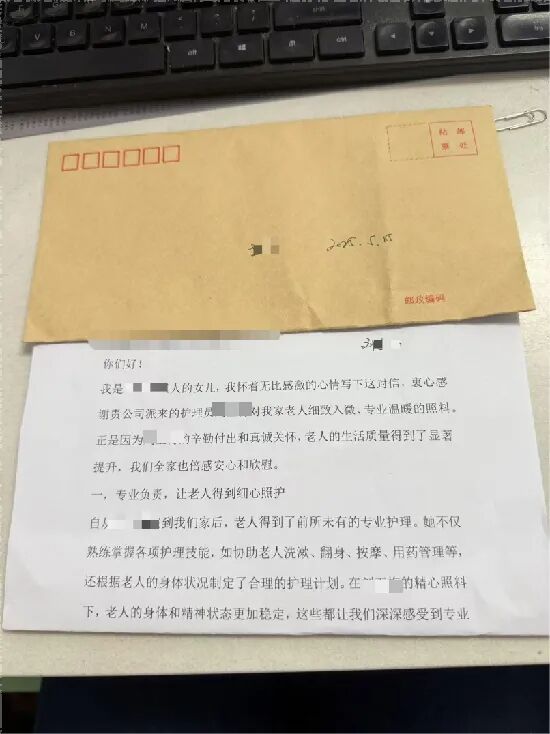 贴 邮
票 处
2025.5.15
邮政编码
你们好！
我是人的女儿，我怀着无比感激的心情写下这封信，衷心感
谢贵公司派来的护理员对我家老人细致入微、专业温暖的照料。
正是因为的辛勤付出和真诚关怀，老人的生活质量得到了显著
提升，我们全家也倍感安心和欣慰。
一、专业负责，让老人得到细心照护
自从到我们家后，老人得到了前所未有的专业护理。她不仅
熟练掌握各项护理技能，如协助老人洗漱、翻身、按摩、用药管理等，
还根据老人的身体状况制定了合理的护理计划。在的精心照料
下，老人的身体和精神状态更加稳定，这些都让我们深深感受到专业